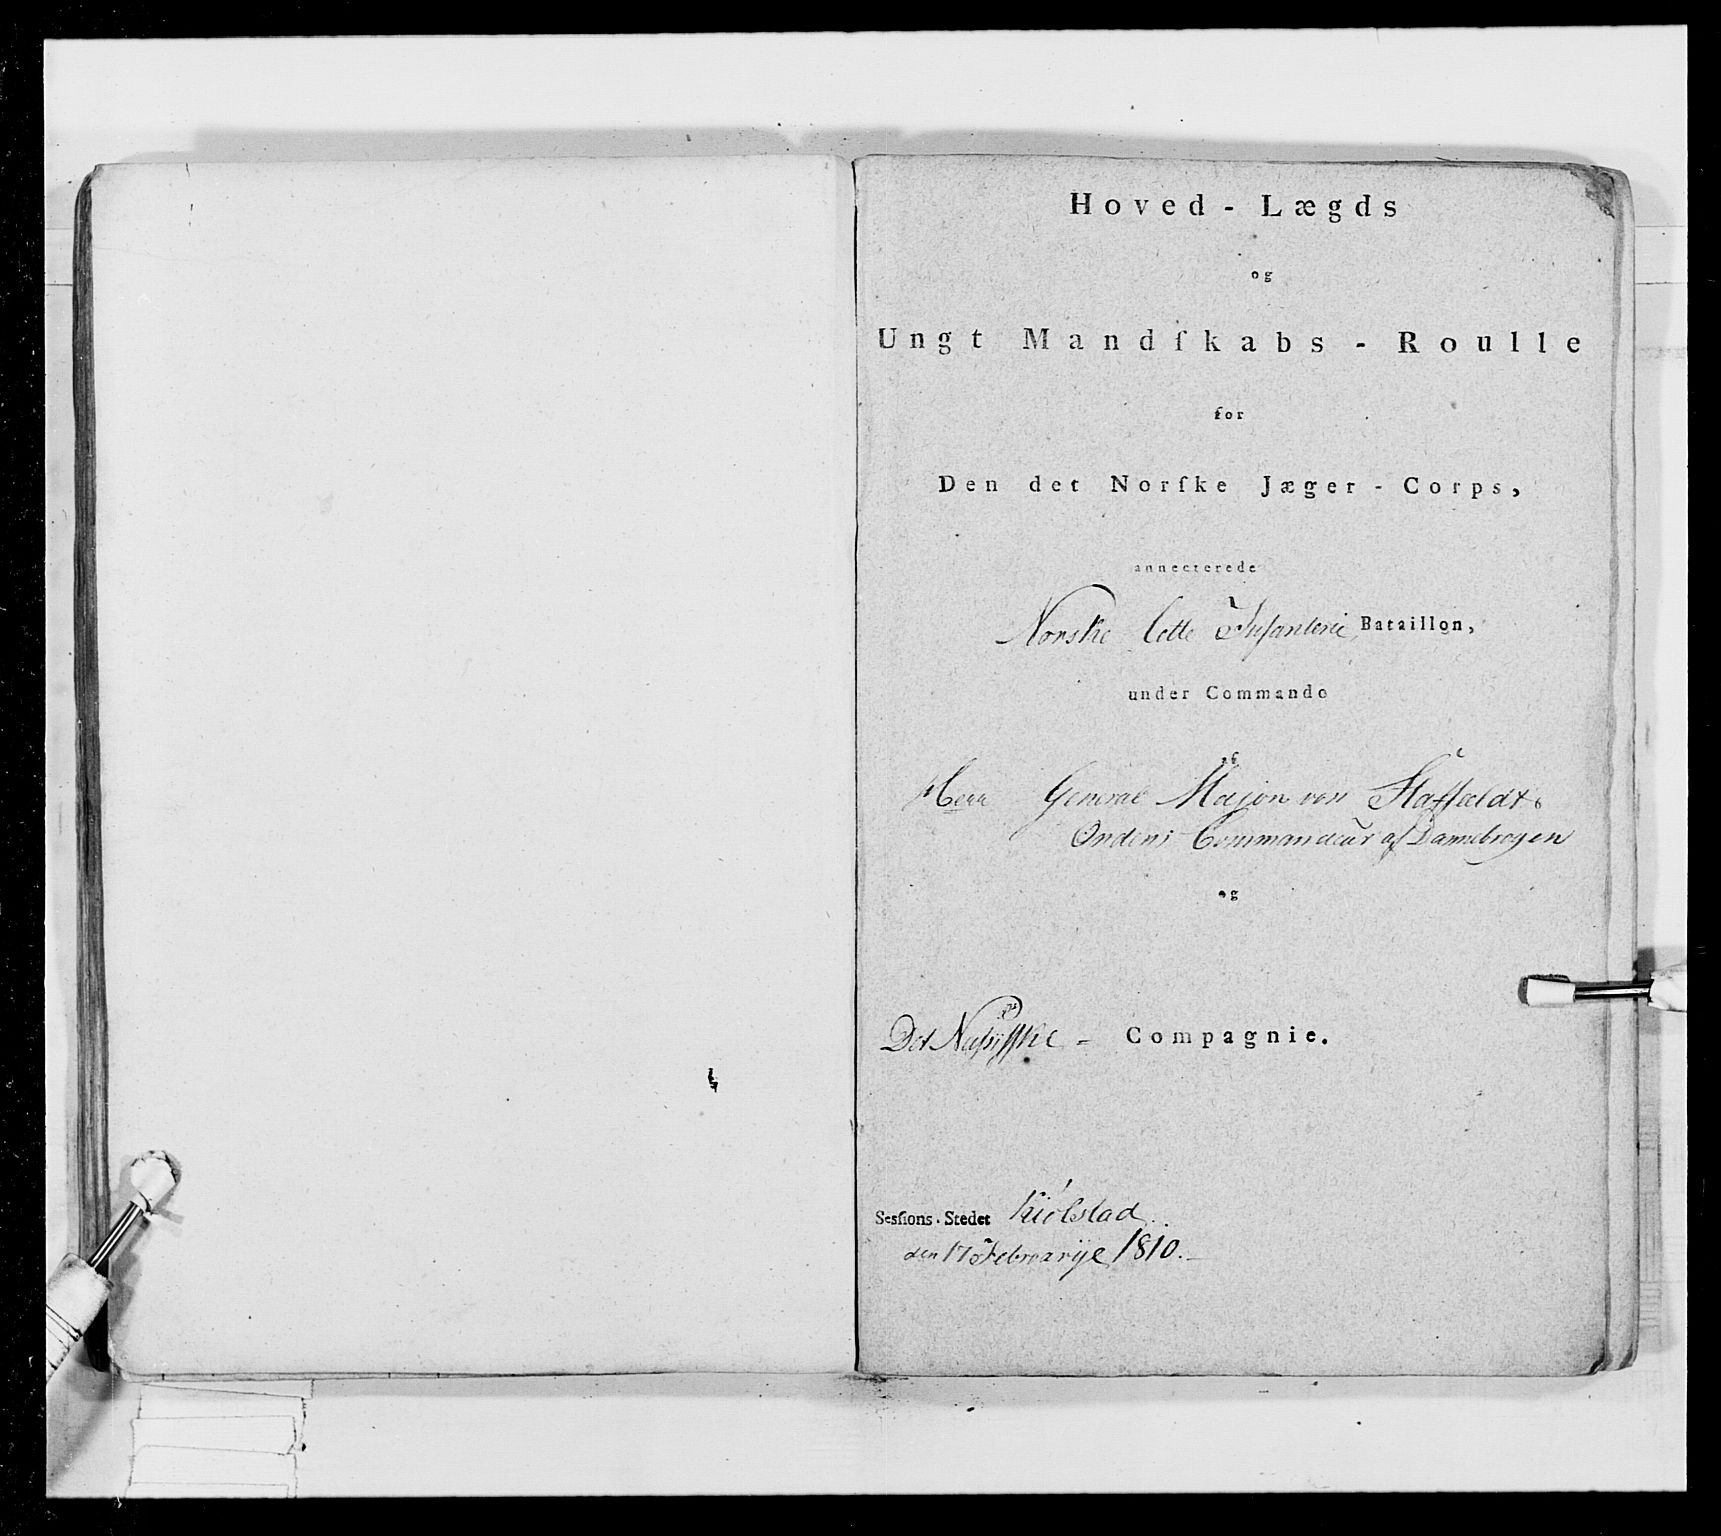 Hoved - Lægds
og
Ungt Mandſkabs - Roulle
for
Den det Norſke Jæger - Corps,
annecterede
Norske lette Infanterie Bataillon,
under Commando
af
Herr General Major von Staffeldt
Ordens Commandeur af Dannebrogen
og
Det - Compagnie.
Sesſions-Stedet Kiólstad
den 17 Februarÿe 1810.